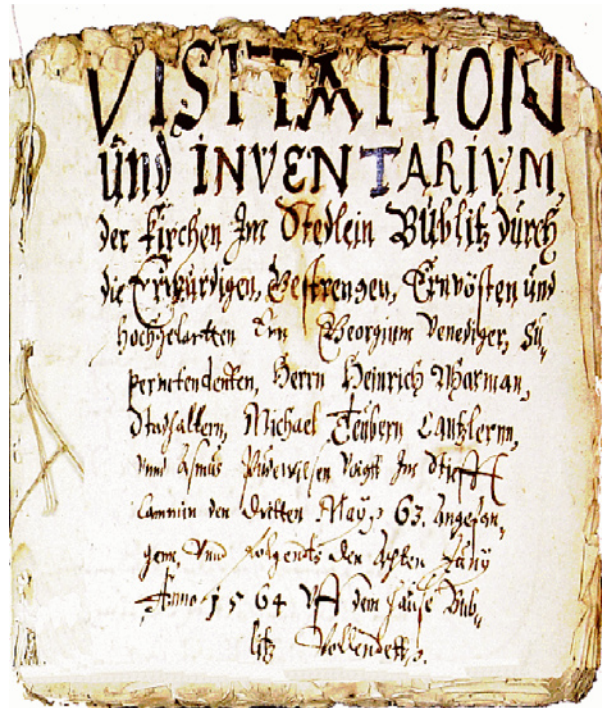 VISITATION
und INVENTARIVM,
der Kirchen Im Stedlein Bublitz durch
die Erwurdigen, Gestrengen, Ernvösten und
Hochgelartten Ern Georgium Venediger, Su,
perintendenten, Herrn Heinrich Norman,
Stadhaltern, Michael Teubern Cantzlernn,
vnnd Asmus Voigtt Im Stifftt
Cammin den Dritten May, 63. angefan,
genn, Vnnd folgendts den Achten Juny
Anno 1564 Vff dem hause Bub,
litz Vollendett.